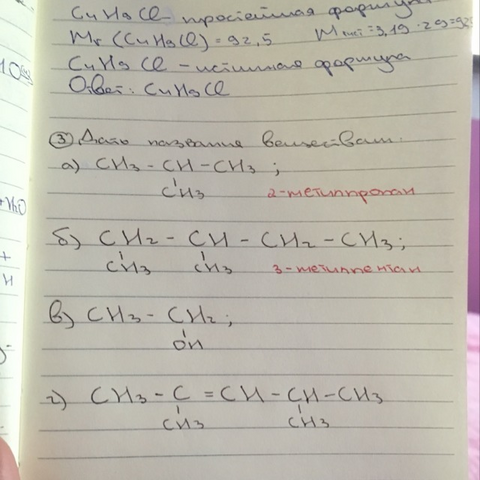 C₄H₉Cl - простейшая формула
Mr (C₄H₉Cl) = 92,5
C₄H₉Cl - истинная формула
Ответ: C₄H₉Cl
③ Дать названия веществам:
а) CH₃ - CH - CH₃ ;
CH₃ 2-метилпропан
б) CH₂ - CH - CH₂ - CH₃;
CH₃ CH₃ 3-метилпентан
в) CH₃ - CH₂;
OH
г) CH₃ - C = CH - CH - CH₃
CH₃ CH₃